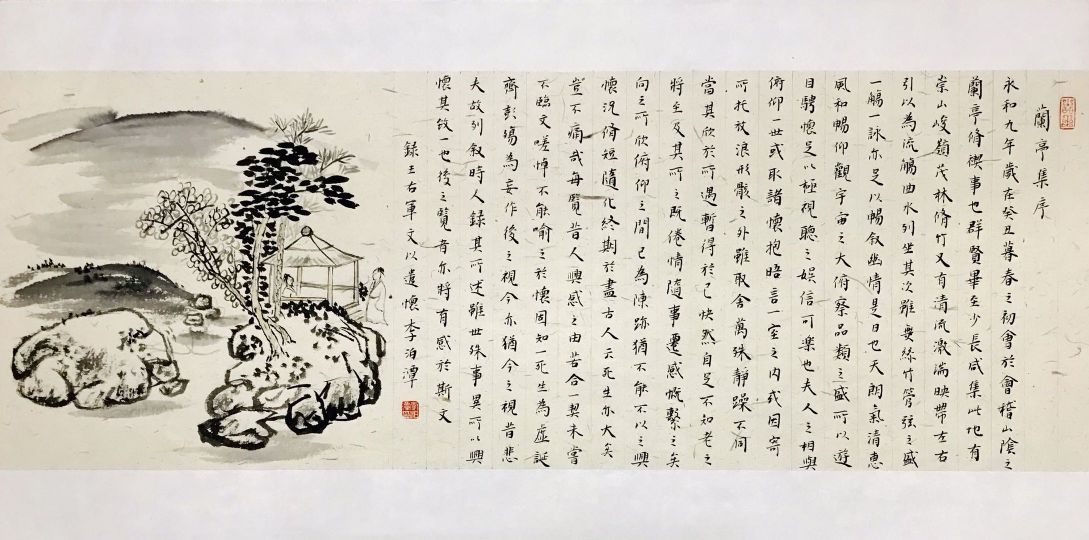 蘭亭集序
永和九年歲在癸丑暮春之初會於會稽山陰之
蘭亭脩禊事也群賢畢至少長咸集此地有
崇山峻嶺茂林脩竹又有清流激湍映帶左右
引以為流觴曲水列坐其次雖無絲竹管弦之盛
一觴一詠亦足以暢敘幽情是日也天朗氣清惠
風和暢仰觀宇宙之大俯察品類之盛所以遊
目騁懷足以極視聽之娛信可樂也夫人之相與
俯仰一世或取諸懷抱晤言一室之內或因寄
所托放浪形骸之外雖取舍萬殊靜躁不同
當其欣於所遇暫得於己快然自足不知老之
將至及其所之既倦情隨事遷感慨繫之矣
向之所欣俯仰之間已為陳跡猶不能不以之興
懷況脩短隨化終期於盡古人云死生亦大矣
豈不痛哉每覽昔人興感之由若合一契未嘗
不臨文嗟悼不能喻之於懷固知一死生為虛誕
齊彭殤為妄作後之視今亦猶今之視昔悲
夫故列敘時人錄其所述雖世殊事異所以興
懷其致一也後之覽者亦將有感於斯文
錄王右軍文以遣懷李泊潭